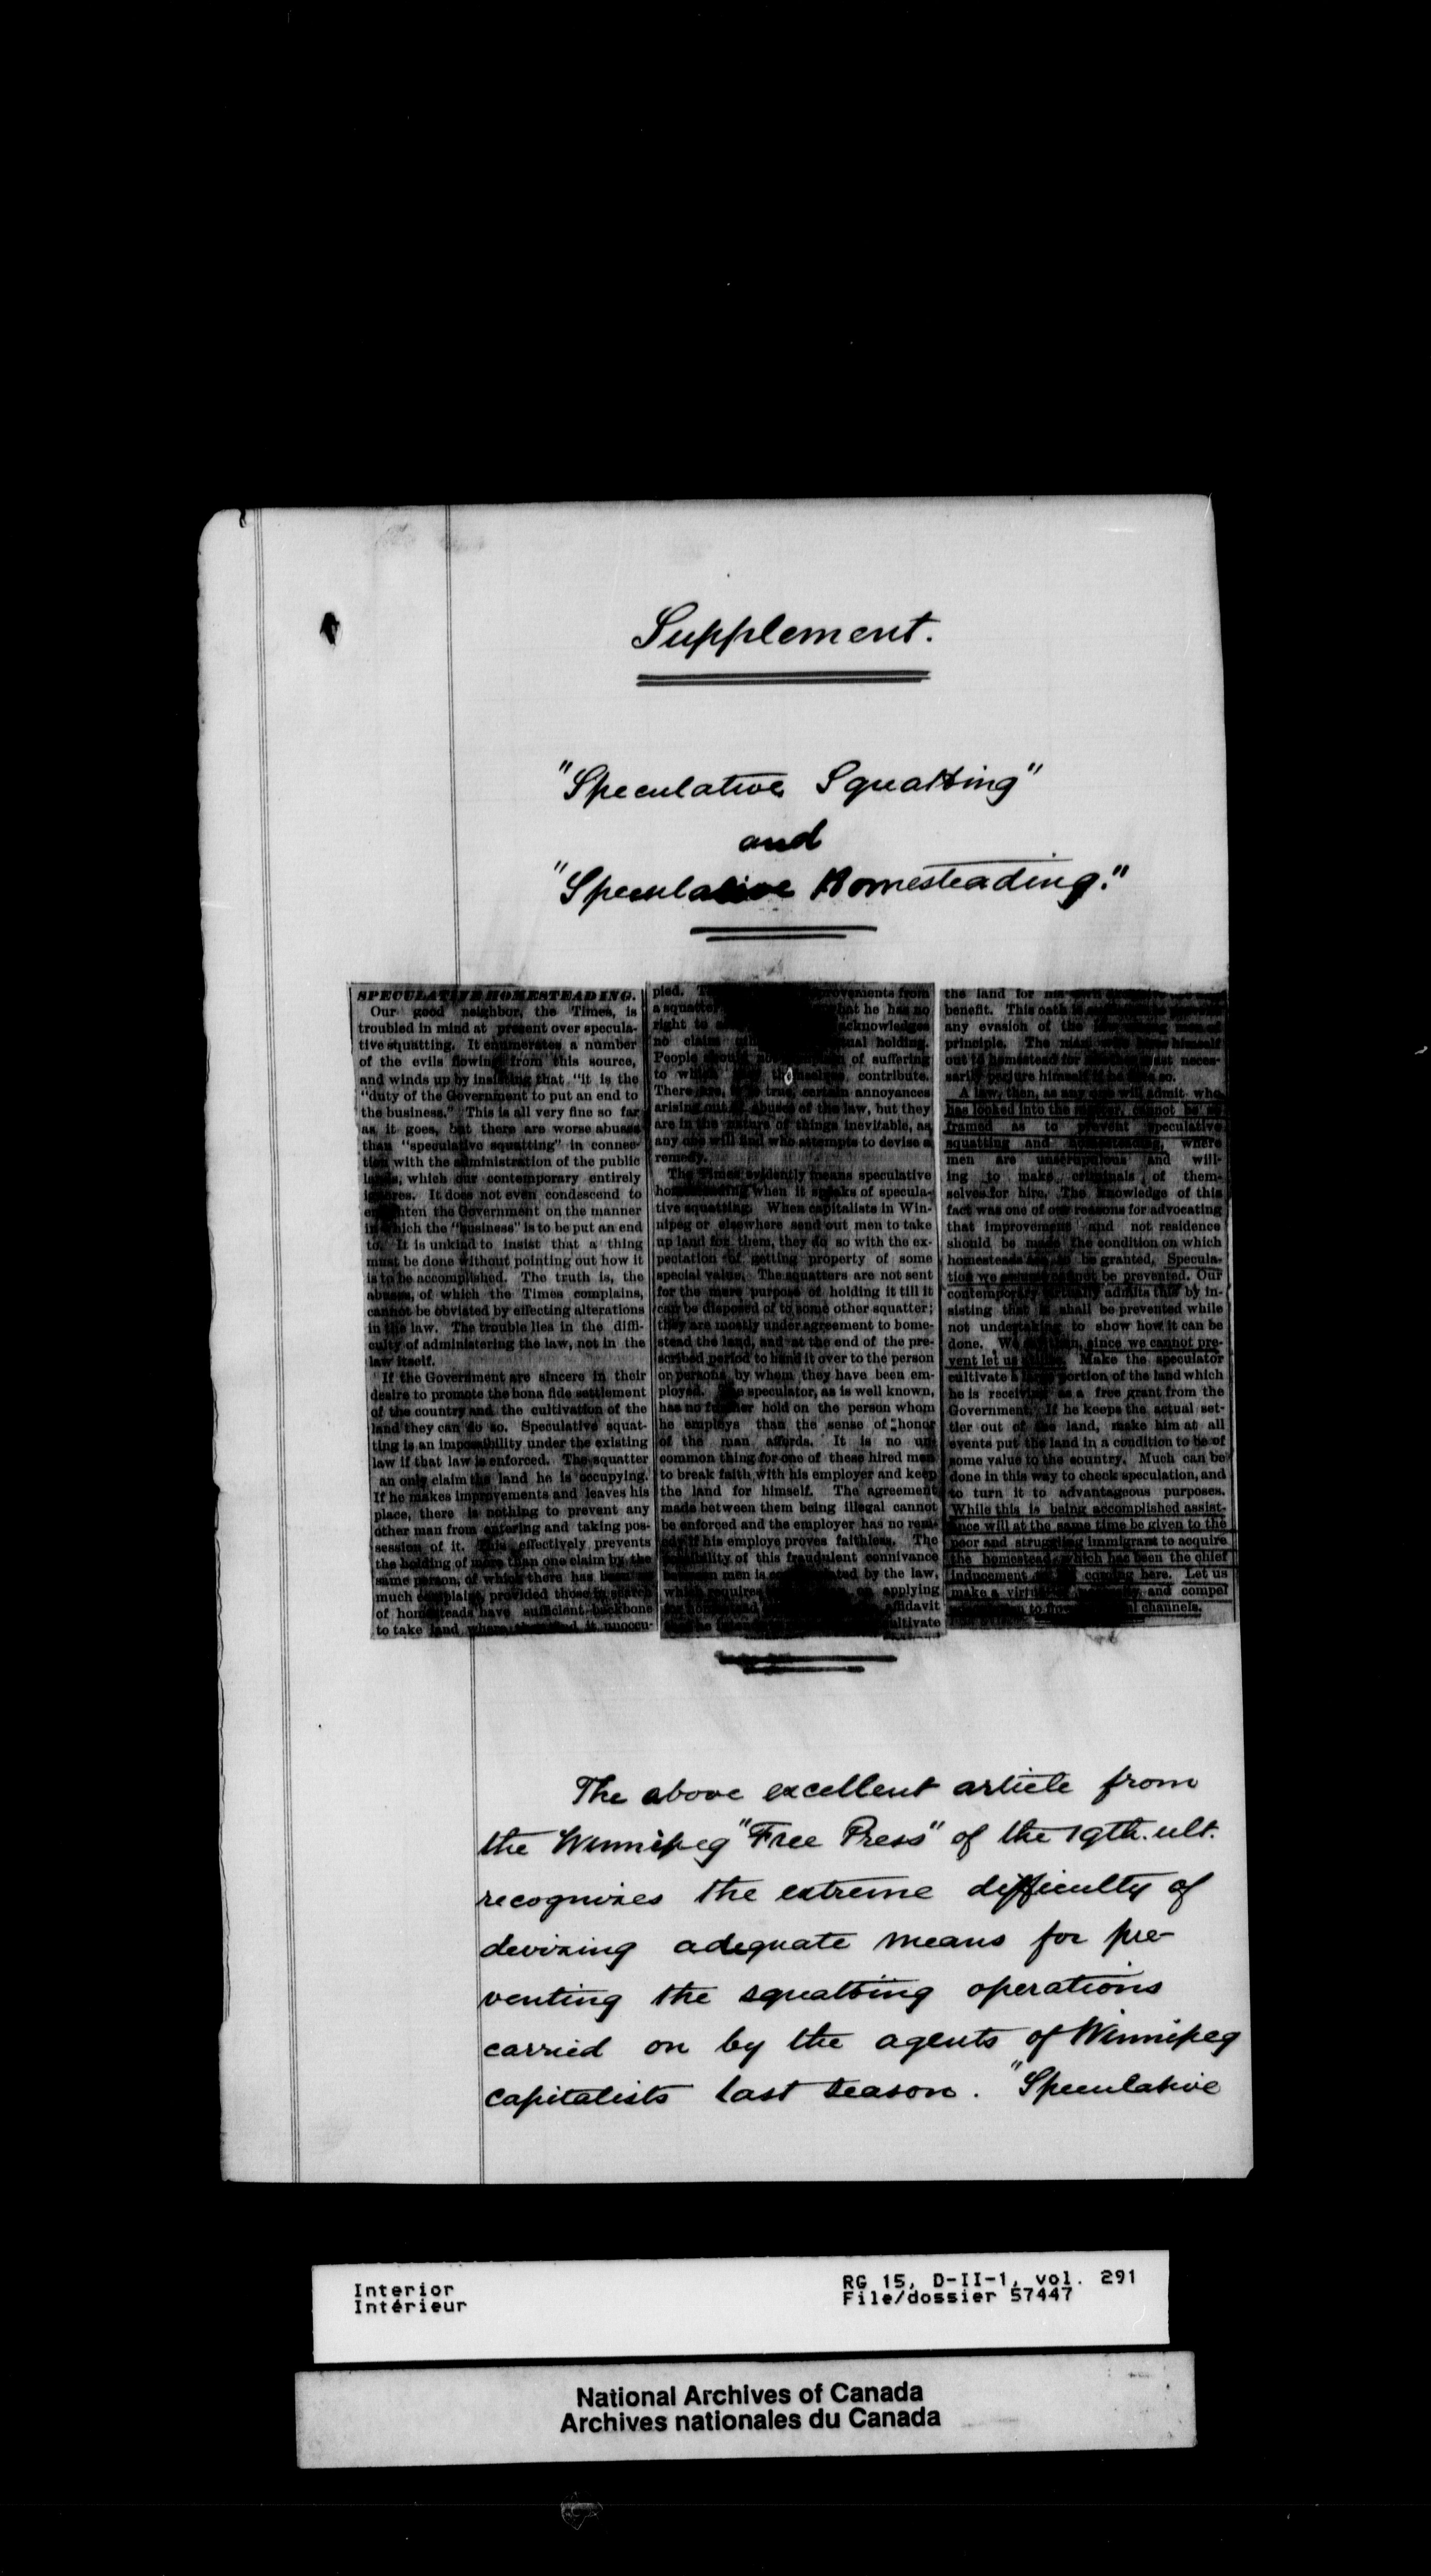 Supplement.
"Speculative Squatting"
and
"Speculative Homesteading."
SPECULATIVE HOMESTEADING.
Our good neighbor, the Times, is
troubled in mind at present over specula-
tive squatting. It enumerates a number
of the evils flowing from this source,
and winds up by insisting that "it is the
"duty of the Government to put an end to
the business." This is all very fine so far
as it goes, but there are worse abuses
than "speculative squatting" in connec-
tion with the administration of the public
lands, which our contemporary entirely
ignores. It does not even condescend to
enlighten the Government on the manner
in which the "business" is to be put an end
to. It is unkind to insist that a thing
must be done without pointing out how it
is to be accomplished. The truth is, the
abuses, of which the Times complains,
cannot be obviated by effecting alterations
in the law. The trouble lies in the diffi-
culty of administering the law, not in the
law itself.
If the Government are sincere in their
desire to promote the bona fide settlement
of the country and the cultivation of the
land they can do so. Speculative squat-
ting is an impossibility under the existing
law if that law is enforced. The squatter
an only claim the land he is occupying.
If he makes improvements and leaves his
place, there is nothing to prevent any
other man from entering and taking pos-
session of it. This effectively prevents
the holding of more than one claim by the
same person, of which there has been
much complaint, provided those in search
of homesteads have sufficient backbone
to take land where they find it unoccu-
pied. improvements from
a squatter, that he has no
right to acknowledges
no claim actual holding.
People should not of suffering
to which they themselves contribute.
There are, it is true, certain annoyances
arising out of abuses of the law, but they
are in the nature of things inevitable, as
any one will find who attempts to devise a
remedy.
The Times evidently means speculative
homesteading when it speaks of specula-
tive squatting. When capitalists in Win-
nipeg or elsewhere send out men to take
up land for them, they do so with the ex-
pectation of getting property of some
special value. The squatters are not sent
for the mere purpose of holding it till it
can be disposed of to some other squatter;
they are mostly under agreement to home-
stead the land, and at the end of the pre-
scribed period to hand it over to the person
or persons by whom they have been em-
ployed. The speculator, as is well known,
has no further hold on the person whom
he employs than the sense of honor
of the man affords. It is no un-
common thing for one of these hired men
to break faith with his employer and keep
the land for himself. The agreement
made between them being illegal cannot
be enforced and the employer has no rem-
edy if his employe proves faithless. The
possibility of this fraudulent connivance
between men is by the law,
which requires on applying
affidavit
cultivate
the land for his own
benefit. This oath is
any evasion of the
principle. The man who hires himself
out to homestead for another must neces-
sarily perjure himself if he does so.
A law, then, as any one will admit who
has looked into the matter, cannot be so
framed as to prevent speculative
squatting and homesteading, where
men are unscrupulous and will-
ing to make criminals of them-
selves for hire. The knowledge of this
fact was one of our reasons for advocating
that improvement and not residence
should be made the condition on which
homesteads are to be granted. Specula-
tion we assume cannot be prevented. Our
contemporary virtually admits this by in-
sisting that it shall be prevented while
not undertaking to show how it can be
done. We say then, since we cannot pre-
vent let us utilize. Make the speculator
cultivate a large portion of the land which
he is receiving as a free grant from the
Government. If he keeps the actual set-
tler out of the land, make him at all
events put the land in a condition to be of
some value to the country. Much can be
done in this way to check speculation, and
to turn it to advantageous purposes.
While this is being accomplished assist-
ance will at the same time be given to the
poor and struggling immigrant to acquire
the homestead, which has been the chief
inducement to his coming here. Let us
make a virtue of necessity, and compel
channels.
The above excellent article from
the Winnipeg "Free Press" of the 19th. ult.
recognizes the extreme difficulty of
devizing adequate means for pre-
venting the squatting operations
carried on by the agents of Winnipeg
capitalists last season. "Speculative
Interior
Intérieur
RG 15, D-II-1, vol. 291
File/dossier 57447
National Archives of Canada
Archives nationales du Canada